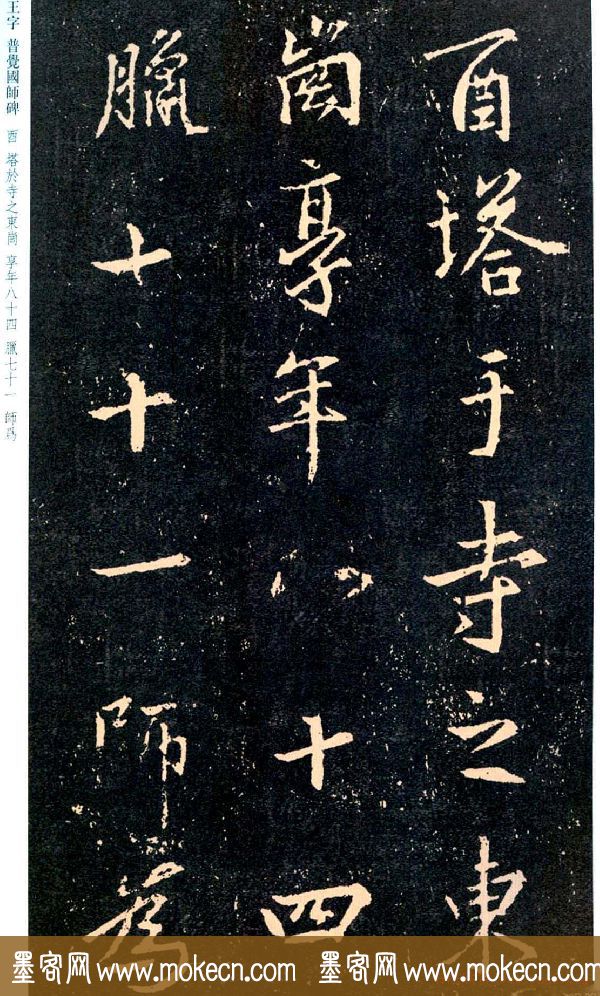 酉塔于寺之東
崗享年八十四
臘七十一師為
王字 普覺國師碑 酉 塔於寺之東崗 享年八十四 臘七十一 師爲
墨客网 www.mokecn.com 墨客网 www.mokecn.com